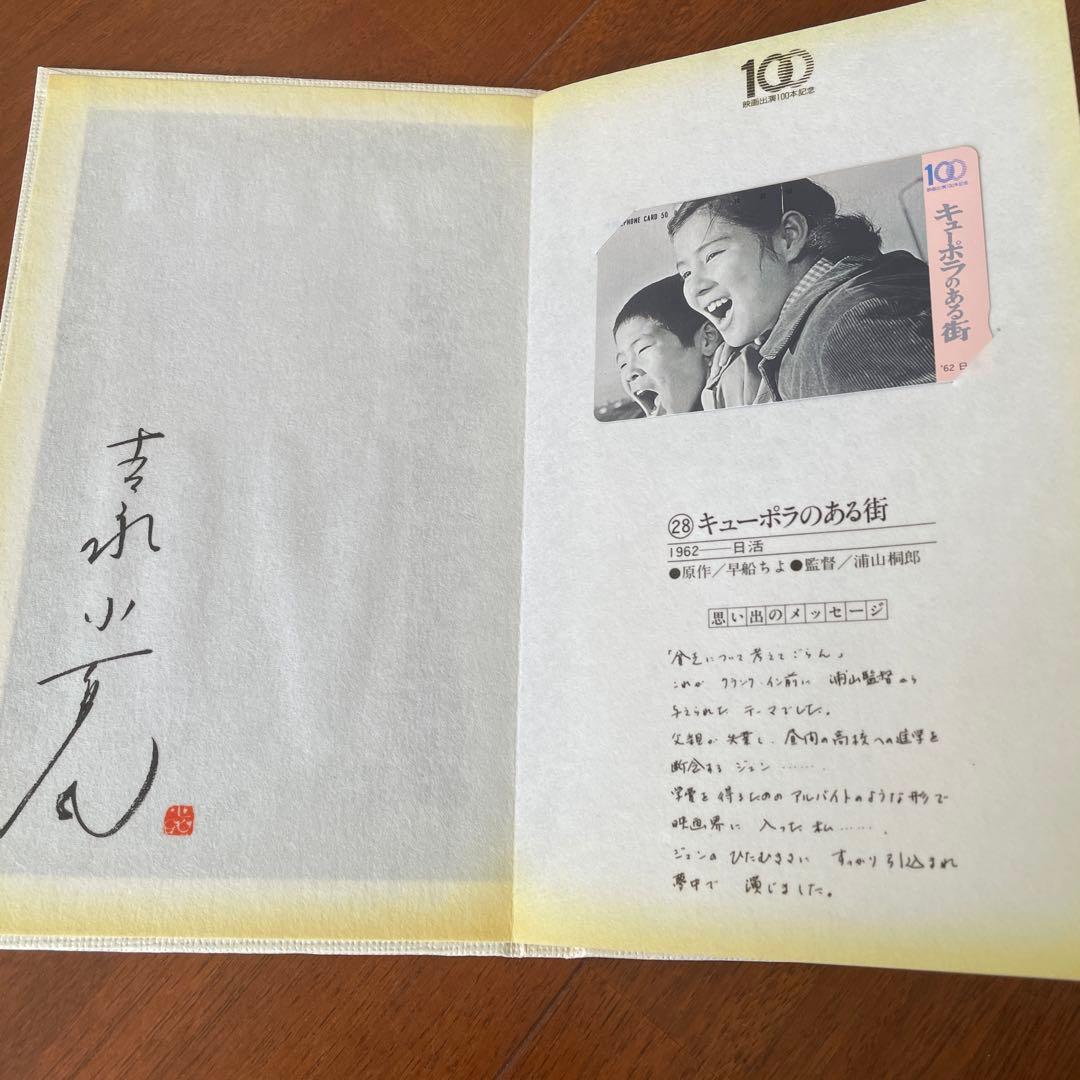 吉永小百合
100
映画出演100本記念
PHONE CARD 50
100
映画出演100本記念
キューポラのある街
'62 日
㉘キューポラのある街
1962──日活
●原作／早船ちよ●監督／浦山桐郎
思い出のメッセージ
「貧乏について考えてごらん」
これが クランク・イン前に 浦山監督から
与えられた テーマでした。
父親が 失業し、昼間の高校への進学を
断念する ジュン……….
学費を 得るための アルバイトのような 形で
映画界に 入った 私………
ジュンの ひたむきさに すっかり 引込まれ
夢中で 演じました。